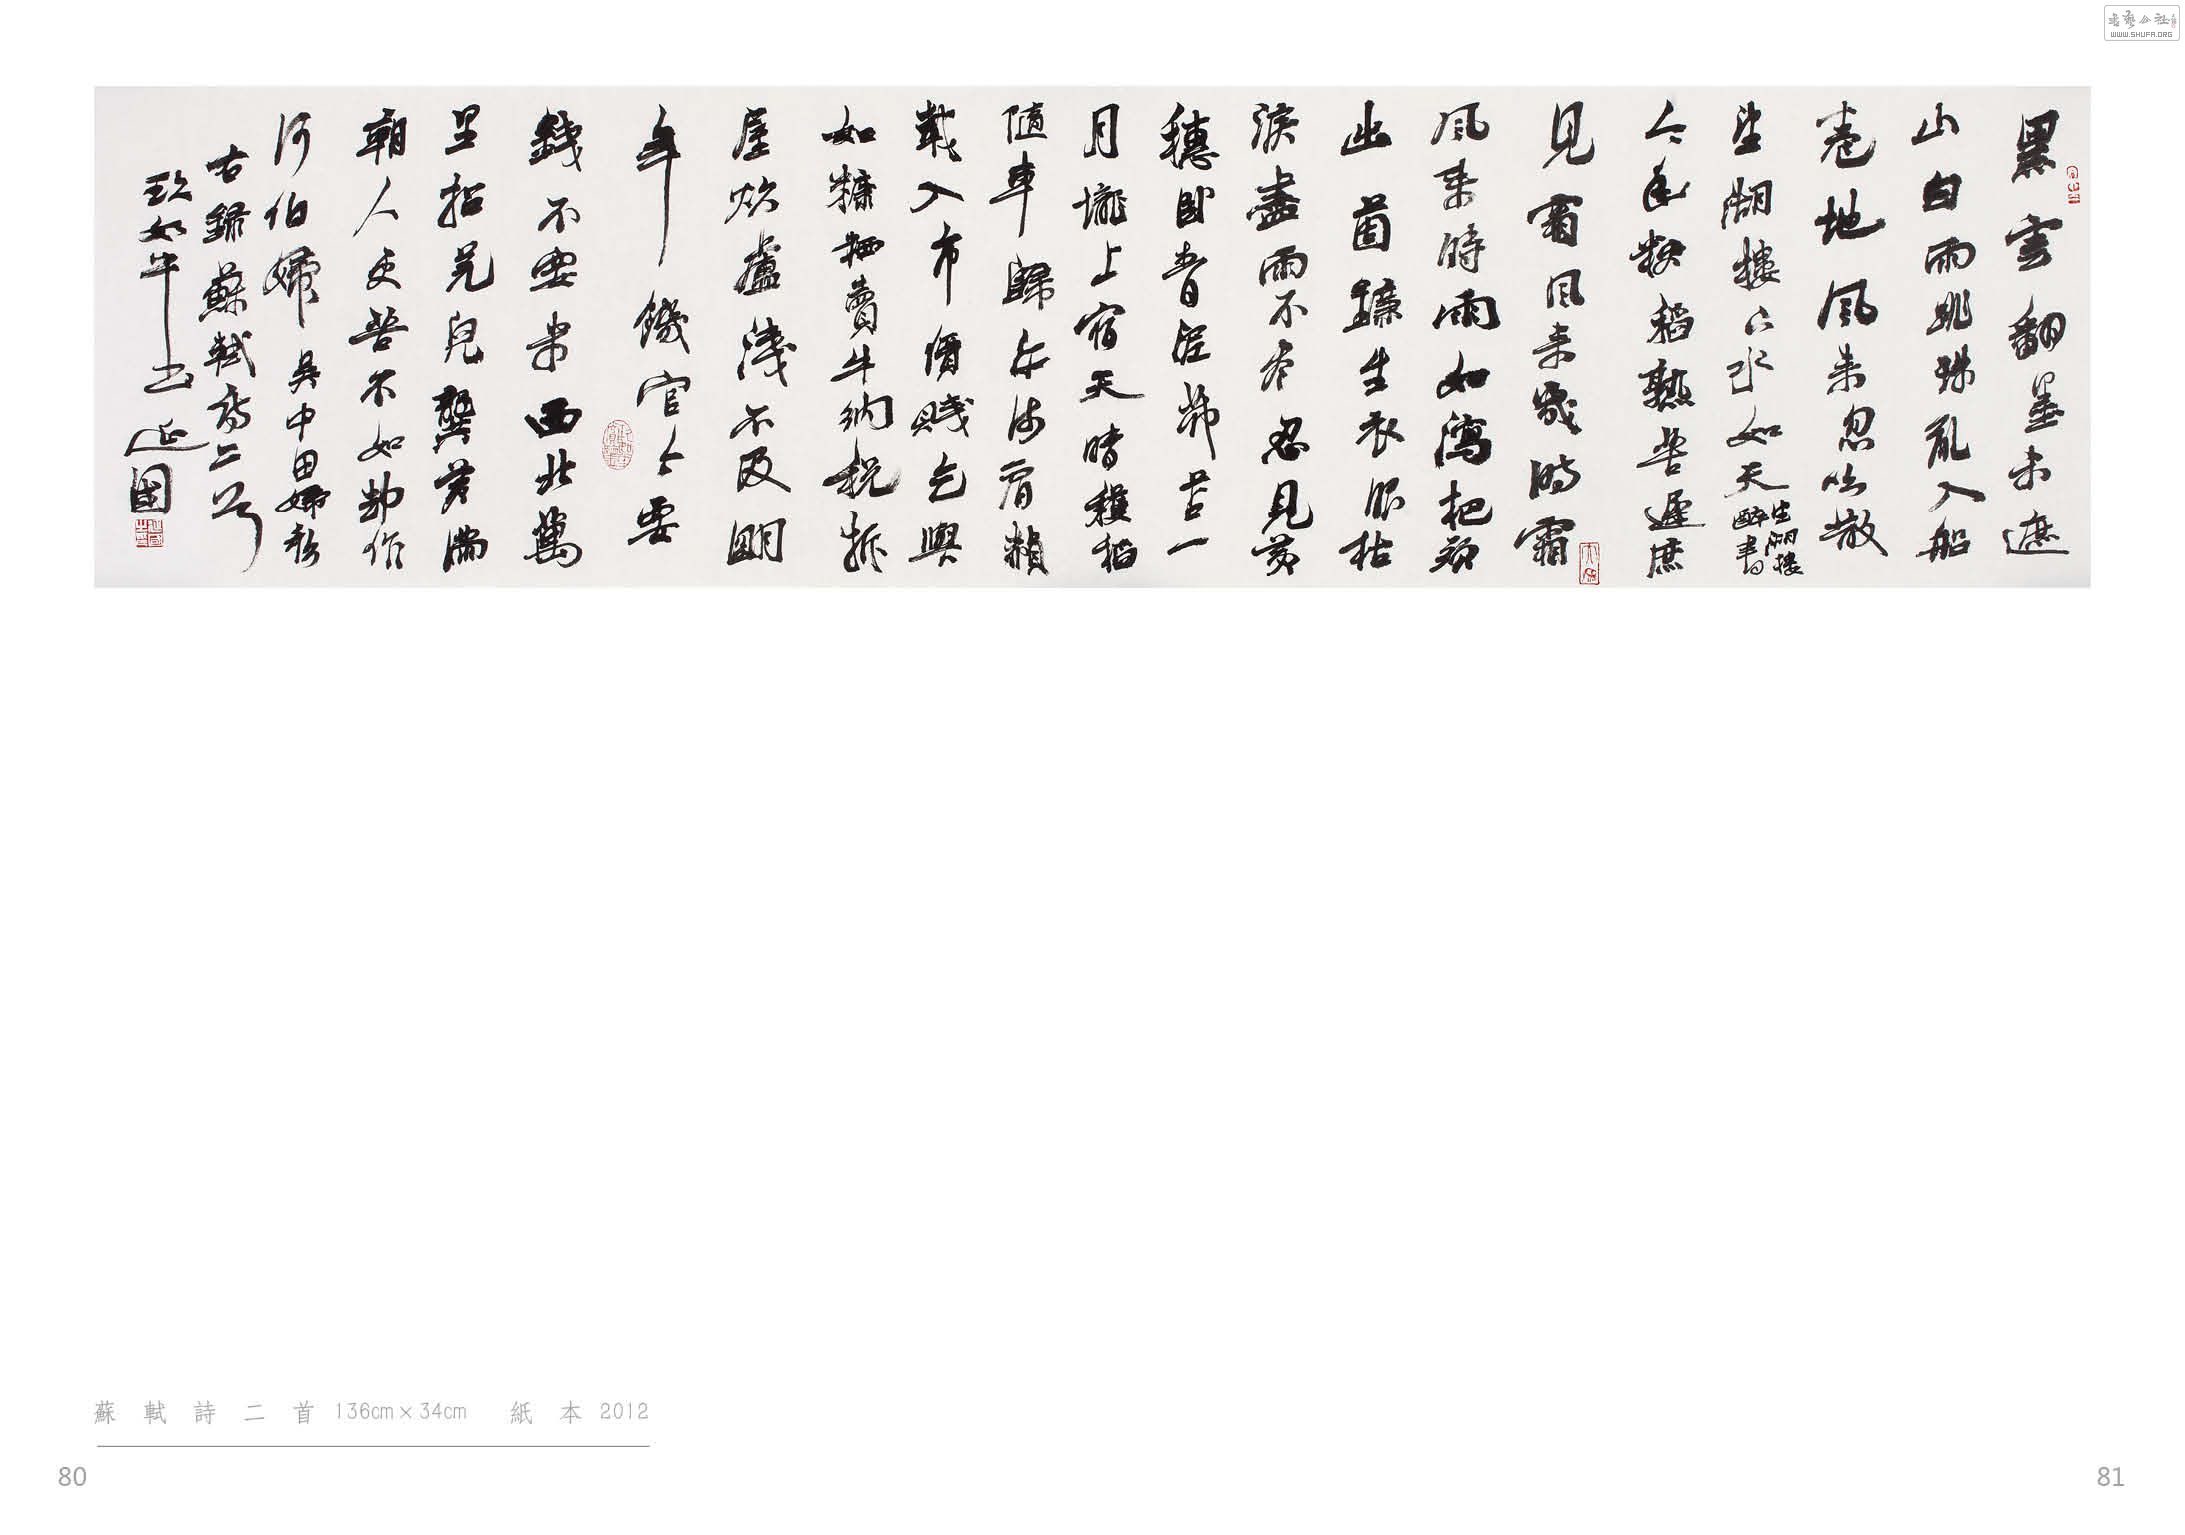 黑雲翻墨未遮
山白雨跳珠亂入船
卷地風來忽吹散
望湖樓下水如天
望湖樓
醉書
今年粳稻熟苦遲庶
見霜風來幾時霜
風來時雨如瀉把頭
出菌鐮生衣眼枯
淚盡雨不盡忍見黃
穗臥青泥茆苫一
月壠上宿天晴穫稻
隨車歸汗流肩赬
載入市價賤乞與
如糠粞賣牛納稅拆
屋炊慮淺不及明
年饑官今要
錢不要米西北萬
里招羌兒龔黃滿
朝人更苦不如卻作
河伯婦 吳中田婦歎
右錄蘇軾詩二首
延國
蘇軾詩二首 136cm×34cm 紙本 2012
80
81
WWW.SHUFA.ORG